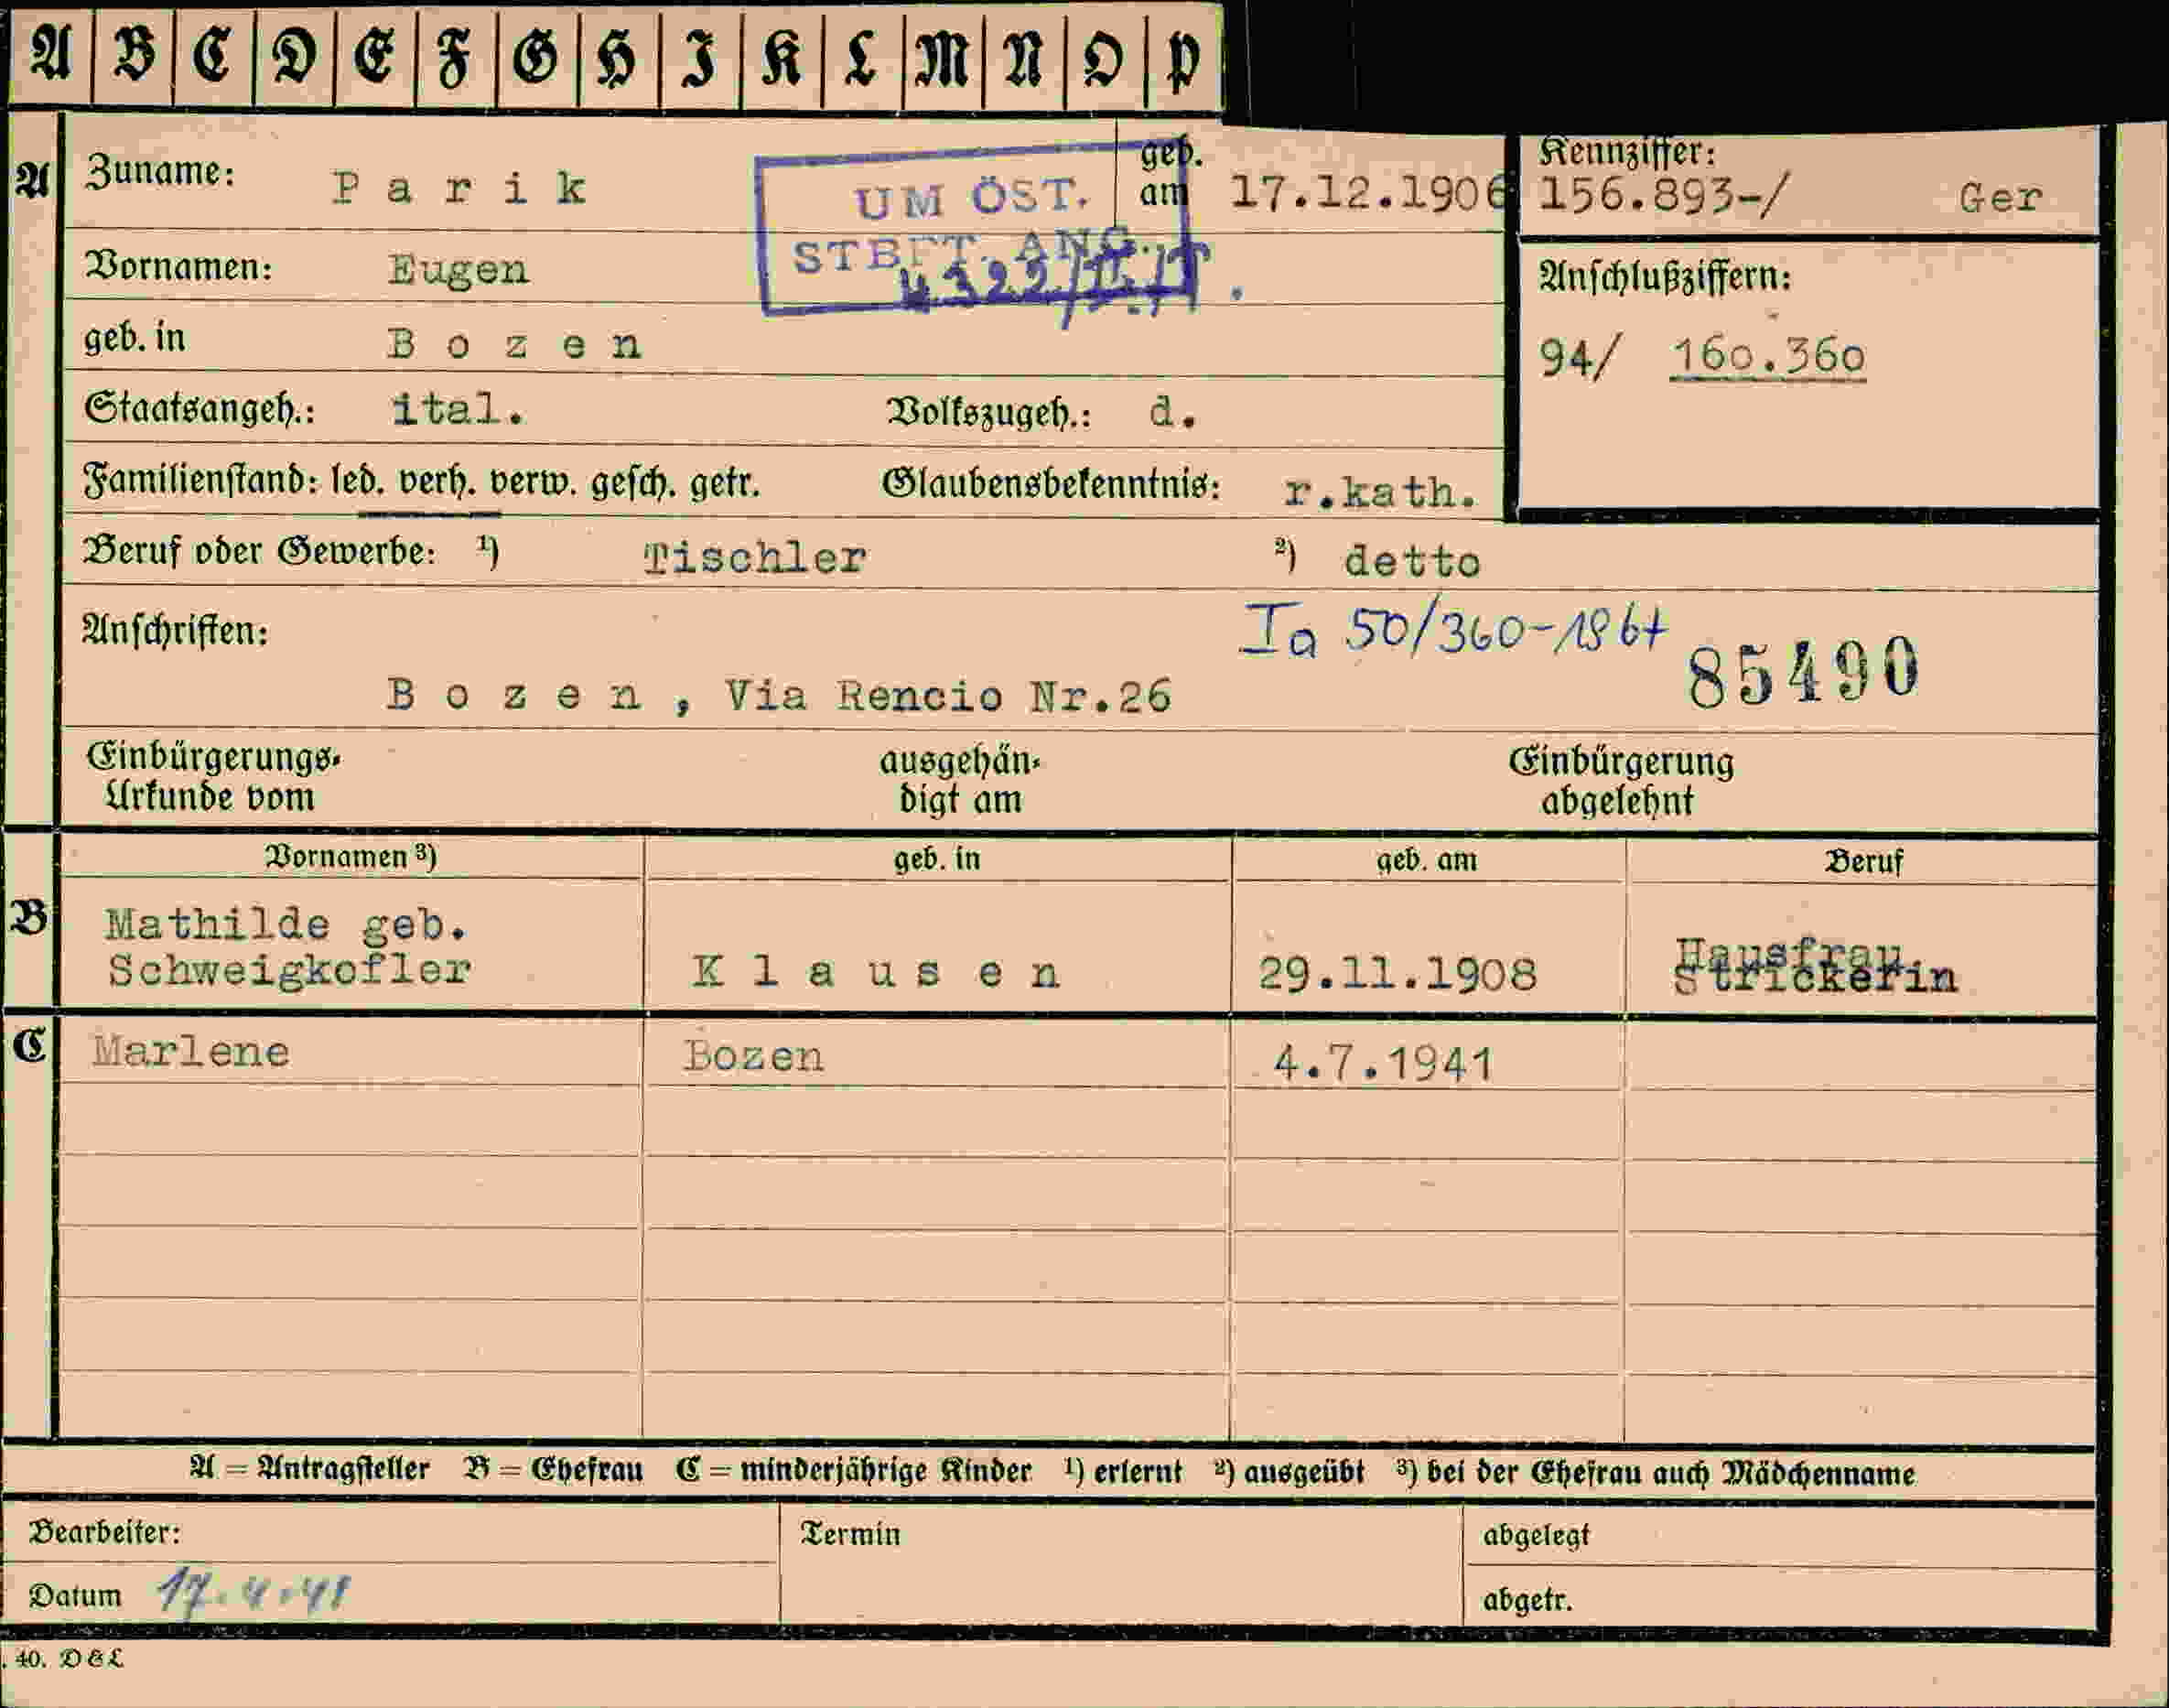 A B C D E F G H I K L M N O P
A
Zuname: Parik geb. am 17.12.1906
Kennziffer:
156.893-/ Ger
UM ÖST.
STBFT. ANG.
Vornamen: Eugen
Anschlußziffern:
94/ 160.360
geb. in Bozen
Staatsangeh.: ital. Volkszugeh.: d.
Familienstand: led. verh. verw. gesch. getr. Glaubensbekenntnis: r.kath.
Beruf oder Gewerbe: ¹) Tischler ²) detto
Anschriften:
Ia 50/360-1961
85490
Bozen, Via Rencio Nr.26
Einbürgerungs-Urkunde vom
ausgehändigt am
Einbürgerung abgelehnt
Vornamen ³) geb. in geb. am Beruf
B
Mathilde geb.
Schweigkofler Klausen 29.11.1908
Hausfrau
Strickerin
C
Marlene Bozen 4.7.1941
A = Antragsteller B = Ehefrau C = minderjährige Kinder ¹) erlernt ²) ausgeübt ³) bei der Ehefrau auch Mädchenname
Bearbeiter: Termin abgelegt
Datum 17.4.41 abgetr.
. 40. D & L